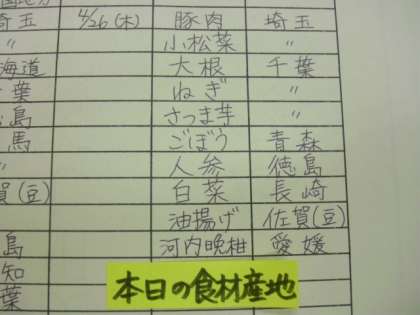 埼玉 4/26(木) 豚肉 埼玉
〃 小松菜 〃
海道 大根 千葉
葉 ねぎ 〃
島 さつま芋 〃
馬 ごぼう 青森
〃 人参 徳島
白菜 長崎
賀(豆) 油揚げ 佐賀(豆)
島 河内晩柑 愛媛
知
葉
本日の食材産地